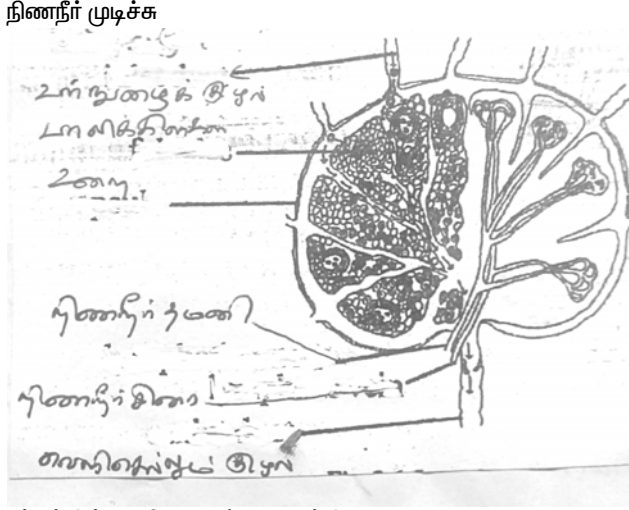 நிணநீர் முடிச்சு
உள்நுழைக் குழல்
உறை
நிணநீர் தமனி
நிணநீர் சிரை
வெளிசெல்லும் குழல்